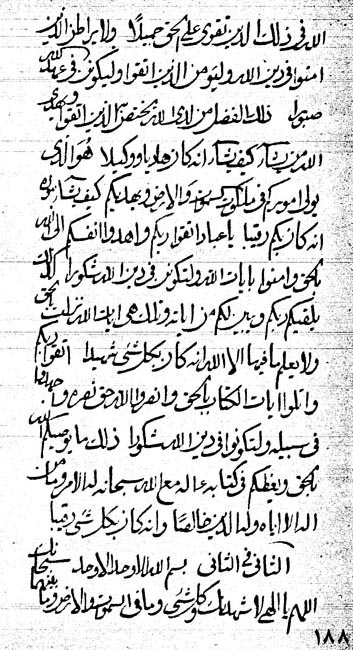 الله في ذلك الدين تقوى على الحق جميلا ولا يراط الذين
امنوا في دين الله وليومن الذين اتقوا وليكونن في عهد الله
صبرا ذلك الفضل من لدى الله يختص بها الذين اتقوا ويهدى
الله من يشاء كيف يشاء انه كان هاديا وكيلا هو الذى
يولى اموركم في ملكوت السموات والارض ويهديكم كيف يشاء
انه كان بكم رقيبا يا عباد اتقوا ربكم واهدوا انفسكم الى الله
بالحق وامنوا بايات الله ولتكونن في دين الله شكورا كذلك
يلقيكم ربكم ويبين لكم من اياته وتلك هى ايات الله نزلت بالحق
ولا يعلم ما فيها الا الله انه كان بكل شئ شهيدا اتقوا ربكم
واتلوا ايات الكتاب بالحق وانصروا الله حق نصره وجاهدوا
في سبيله ولتكونوا في دين الله شكورا ذلك ما يوصيكم الله
بالحق ويعظكم في كتابه ءاله مع الله سبحانه له الامر وما من
اله الا اياه وله الدين خالصا وانه كان بكل شئ رقيبا
الثانى في الثانى بسم الله الاوحد الاوحد
اللهم يا الهى لاشهدنك وكل شئ وما في السموات والارض وما بينهما
١٨٨